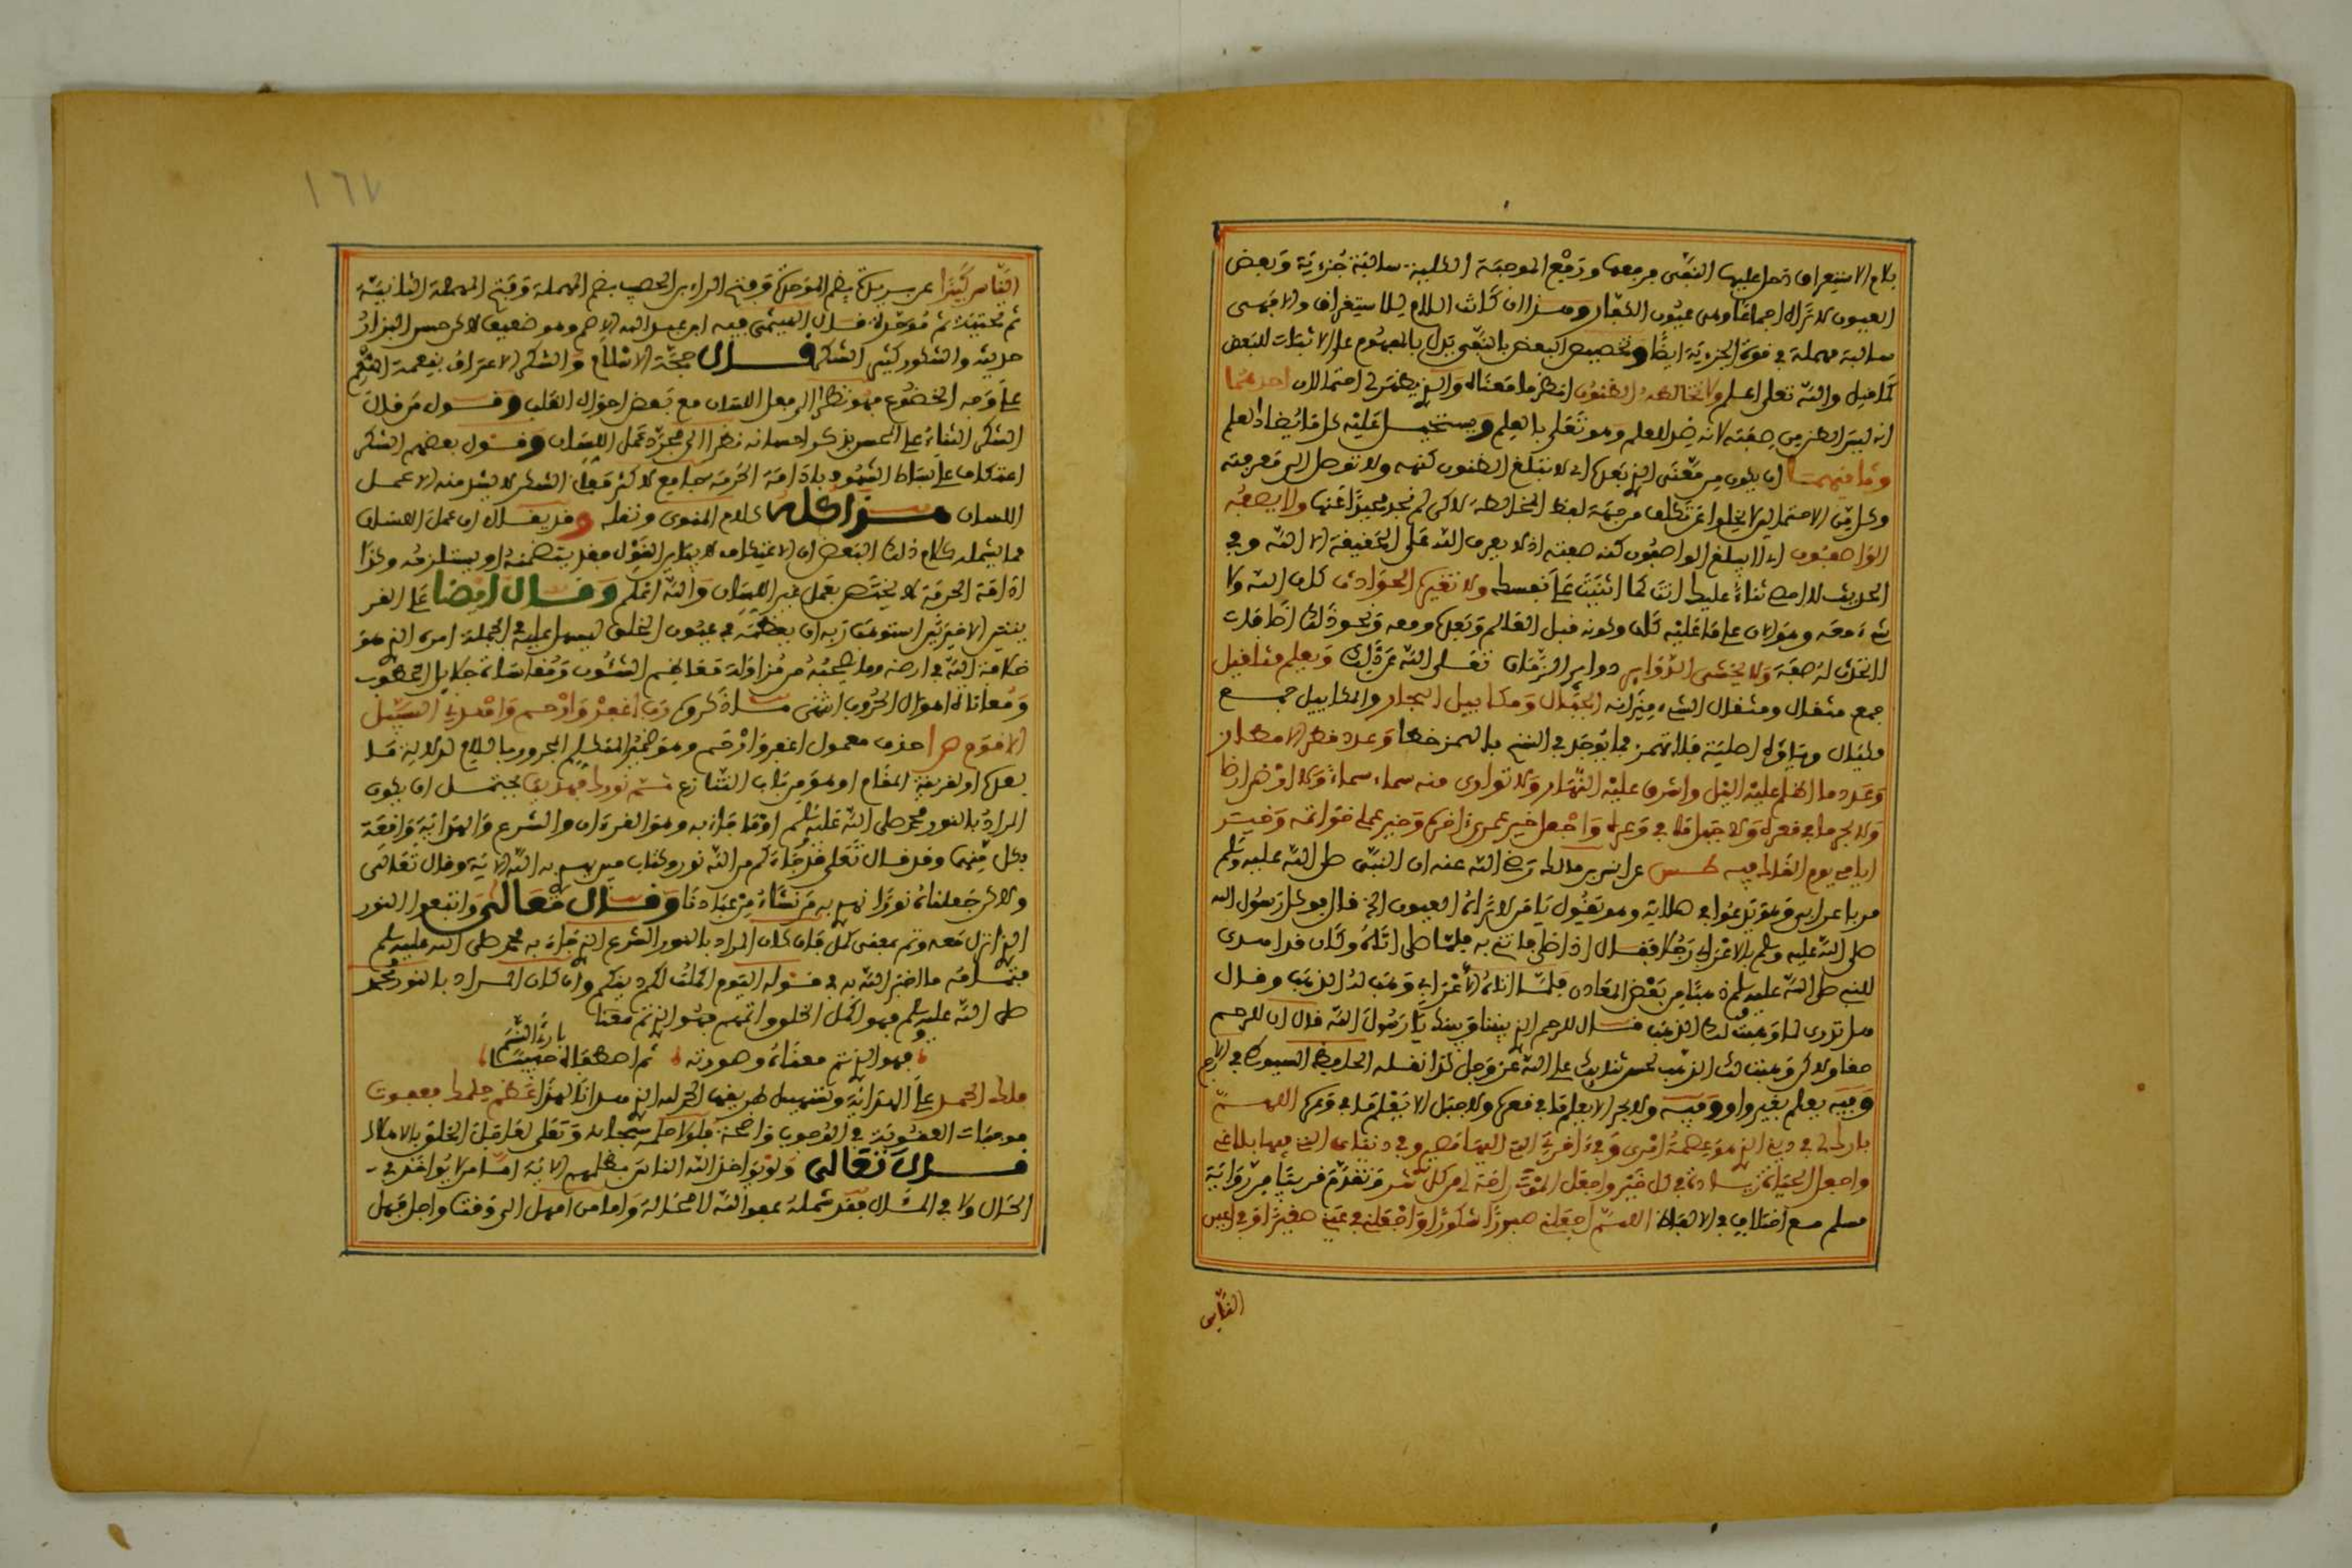 بلام الاستغراق دخل عليها النفي فرفعها ورفع الموجبة الكلية سالبة جزئية وبعض
العيون لا تراه اجماعا وهى عيون الكفار وهذا ان كانت اللام للاستغراق والا فهى
سالبة مهملة في قوة الجزئية ايضا وتخصيص البعض بالنفي يدل بالمفهوم على الاثبات للبعض
كما قيل والله تعلى اعلم ولا تخالطه الظنون انظر ما معناه والذي يظهر لى احتمالان احدهما
انه ليس الظن من صفته لانه ضد للعلم وهو تعلى بالعلم ويستحيل عليه كل ما يضاد العلم
وثانيهما ان يكون من معنى الذي بعده اى لا تبلغ الظنون كنهه ولا توصل الى معرفته
وكل من الاحتمالين لا يخلوا عن تكلف من جهة لفظ المخالطة لاكن لم نجد محيدا عنها ولا يصفه
الواصفون اى لا يبلغ الواصفون كنه صفته اذ لا يعرف الله على الحقيقة الا الله وفي
الحديث لا احصى ثناء عليك انت كما اثنيت على نفسك ولا تغيره الحوادث كان الله ولا
شىء معه وهو الان على ما عليه كان وكونه قبل العالم وبعده ومعه ونحو ذلك اضافات
لا تحدث له صفة ولا يخشى الدوائر دوائر الزمان تعلى الله عن ذلك ويعلم مثاقيل
جمع مثقال ومثقال الشىء ميزانه الجبال ومكاييل البحار والمكاييل جمع
مكيال وياؤه اصلية فلا تهمز فما يوجد في النسخ بالهمز خطأ وعدد قطر الامطار
وعدد ما اظلم عليه الليل واشرق عليه النهار ولا توارى منه سماء سماء ولا ارض ارضا
ولا بحر ما في قعره ولا جبل ما في وعره واجعل خير عمرى اخره وخير عملى خواتمه وخير
ايامى يوم القاك فيه طس عن انس بن مالك رضى الله عنه ان النبي صلى الله عليه وسلم
مر باعرابى وهو يدعوا في صلاته وهو يقول يا من لا تراه العيون الخ قال فوكل رسول الله
صلى الله عليه وسلم بالاعرابى رجلا فقال اذا صلى فاتنى به فلما صلى اتاه وكان قد اهدى
للنبي صلى الله عليه وسلم ذهبا من بعض المعادن فلما اتاه الاعرابى وهب له الذهب وقال
هل تدرى لم وهبت لك الذهب قال للرحم الذي بيننا وبينك يا رسول الله قال ان للرحم
حقا ولاكن وهبت لك الذهب لحسن ثنائك على الله عز وجل كذا نقله الحافظ السيوطى في الاصل
وفيه يعلم بغير واو وفيه ولا بحر الا يعلم ما في قعره ولا جبل الا يعلم ما في وعره اللهم
بارك لى في دينى الذي هو عصمة امرى وفي اخرتى التى اليها مصيرى وفي دنياى التى فيها بلاغى
واجعل الحياة زيادة لى في كل خير واجعل الموت راحة لى من كل شر وتقدم قريبا من رواية
مسلم مع اختلاف في الالفاظ اللهم اجعلنى صبورا شكورا واجعلنى في عينى صغيرا وفي اعين
الناس
١٦٧
الناس كبيرا عن بريدة بضم الموحدة وفتح الراء بن الحصيب بضم المهملة وفتح المهملة الثانية
ثم تحتية ثم موحدة قال الهيثمى فيه ابن عبد الله الاصم وهو ضعيف لاكن حسن البزار
حديثه والشكور كثير الشكر قال حجة الاسلام والشكر الاعتراف بنعمة المنعم
على وجه الخضوع فهو نظر الى فعل اللسان مع بعض احوال القلب وقول من قال
الشكر الثناء على المحسن بذكر احسانه نظر الى مجرد عمل اللسان وقول بعضهم الشكر
اعتكاف على بساط الشهود بادامة الحرمة جامع لاكثر معانى الشكر لا يشذ منه الا عمل
اللسان هذا كله كلام المنوى ونقله وقد يقال ان عمل اللسان
مما يشمله كلام ذلك البعض اذ الاعتكاف لا ينافى القول فقد يتضمنه او يستلزمه وكذا
ادامة الحرمة لا يختص بعمل غير اللسان والله اعلم وقال ايضا على
الاخيرتين استوهب ربه ان يعظمه في عيون الخلق ليسهل عليه في الجملة امره الذي هو
خلافة الله في ارضه وما يصحبه من مزاولة معاظم الشئون ومقاسات جلايل الخطوب
ومعاناة اهوال الحروب انتهى رب اغفر وارحم واهدنى السبيل
الاقوم حذف معمول اغفر وارحم وهو ضمير المتكلم المجرور باللام لدلالة ما
بعده او لقرينة المقام او هو من باب التنازع تم نورك فهديت يحتمل ان يكون
المراد بالنور محمد صلى الله عليه وسلم او ما جاء به وهو القرءان والشرع والهداية واقعة
بكل منهما وقد قال تعلى قد جاءكم من الله نور وكتاب مبين يهدى به الله الاية وقال تعلى
ولاكن جعلناه نورا نهدى به من نشاء من عبادنا وقال تعالى واتبعوا النور
الذي انزل معه وتم بمعنى كمل فان كان المراد بالنور الشرع الذي جاء به محمد صلى الله عليه وسلم
فتمامه ما اخبر الله به في قوله اليوم اكملت لكم دينكم وان كان المراد بالنور محمد
صلى الله عليه وسلم فهو اكمل الخلق واتمهم فهو الذي تم معنا
فهو الذي تم معناه وصورته ثم اصطفاه حبيبا بارئ النسم
فلك الحمد على الهداية وتسهيل طريقها الحمد لله الذي هدانا لهذا عظم حلمك فعفوت
موجبات العقوبة في الذنوب واضحة فلولا حلمه سبحانه وتعلى لعاجل الخلق بالاهلاك
قال تعالى ولو يواخذ الله الناس بظلمهم الاية اما من لا يواخذ في
الحال ولا في المئال فقد شمله عفو الله لا محالة واما من امهل الى وقت واجل فهل